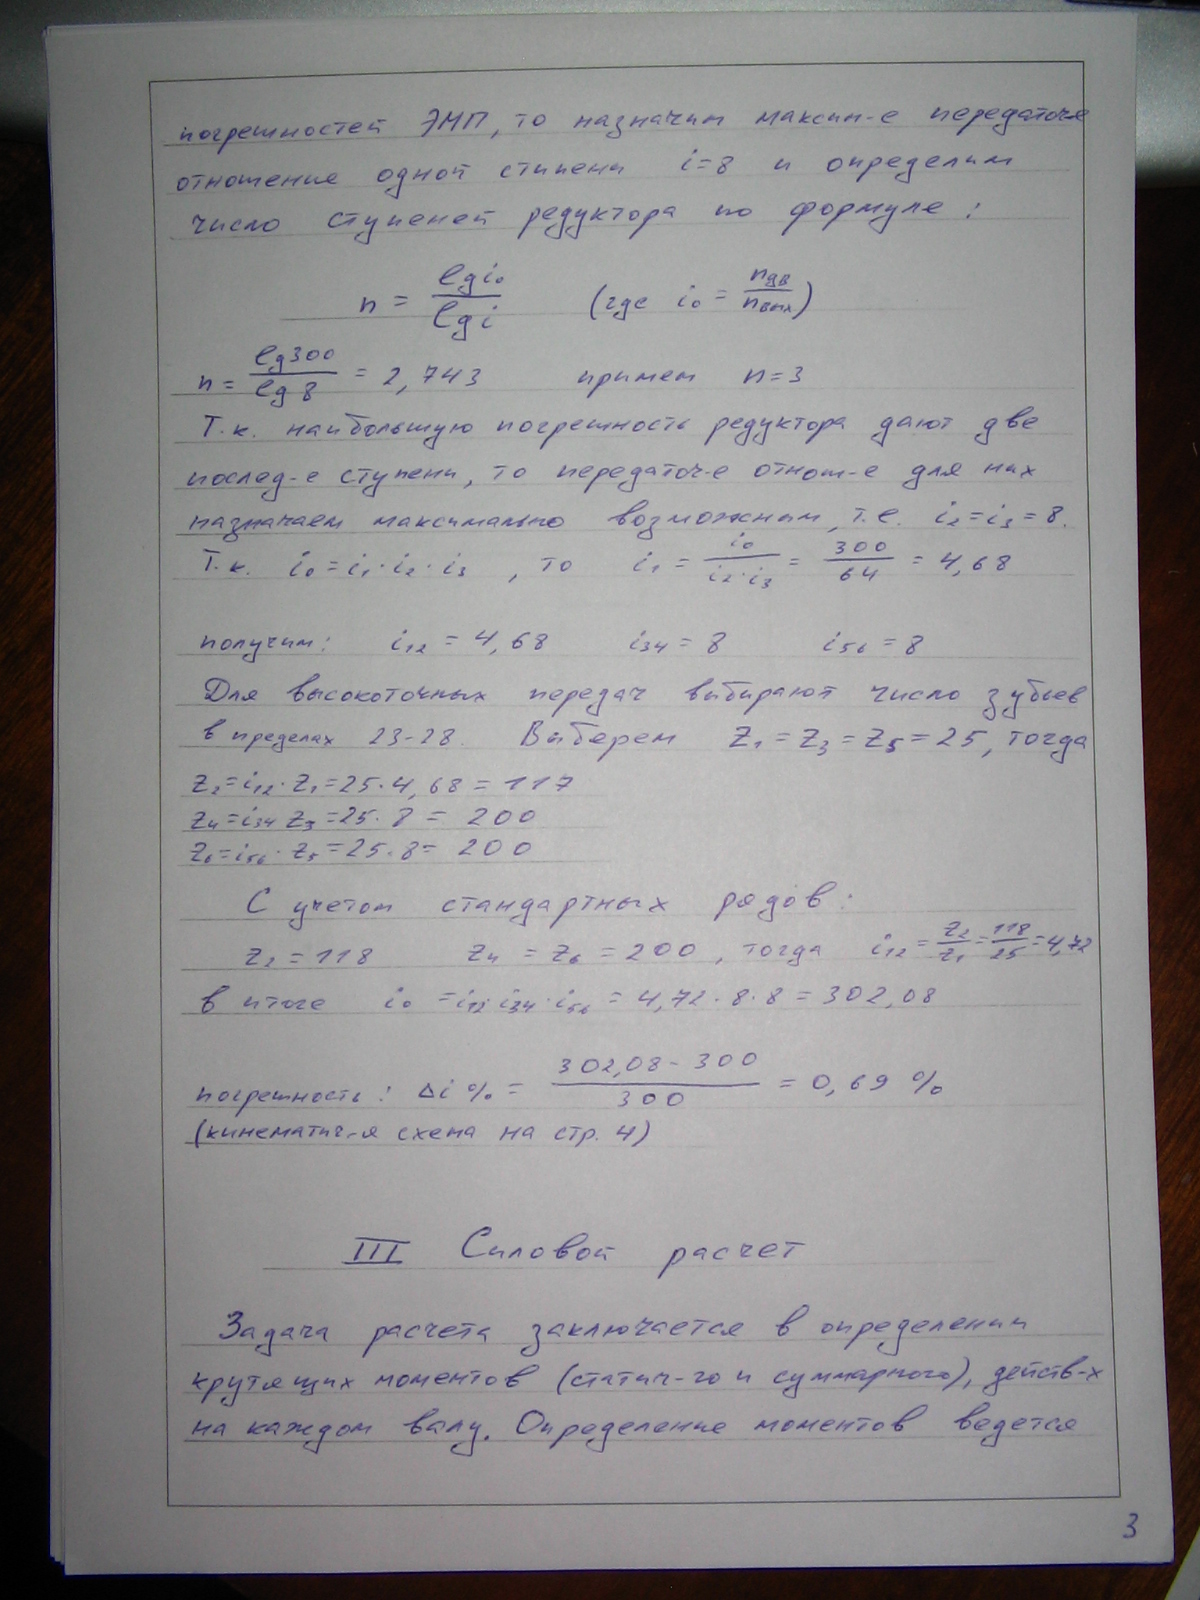 погрешностей ЭМП, то назначим максим-е передаточ-е
отношение одной ступени i=8 и определим
число ступеней редуктора по формуле:
n = lg i₀ / lg i (где i₀ = nдв / nвых)
n = lg300 / lg 8 = 2,743 примем n=3
Т.к. наибольшую погрешность редуктора дают две
послед-е ступени, то передаточ-е отнош-е для них
назначаем максимально возможным, т.е. i₂=i₃=8.
Т.к. i₀=i₁·i₂·i₃, то i₁ = i₀ / i₂·i₃ = 300 / 64 = 4,68
получим: i₁₂ = 4,68 i₃₄ = 8 i₅₆ = 8
Для высокоточных передач выбирают число зубьев
в пределах 23-28. Выберем Z₁ = Z₃ = Z₅ = 25, тогда
Z₂=i₁₂·Z₁=25·4,68=117
Z₄=i₃₄ Z₃=25·8 = 200
Z₆=i₅₆·Z₅=25·8= 200
С учетом стандартных рядов:
Z₂ = 118 Z₄ = Z₆ = 200, тогда i₁₂ = Z₂/Z₁ = 118/25 = 4,72
в итоге i₀ = i₁₂·i₃₄·i₅₆ = 4,72·8·8 = 302,08
погрешность: Δi % = 302,08 - 300 / 300 = 0,69 %
(кинематич-я схема на стр. 4)
III Силовой расчет
Задача расчета заключается в определении
крутящих моментов (статич-го и суммарного), действ-х
на каждом валу. Определение моментов ведется
3